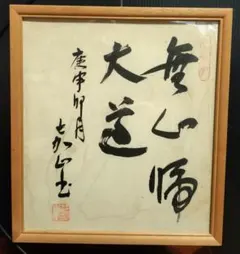 無心帰
大道
庚申卯月